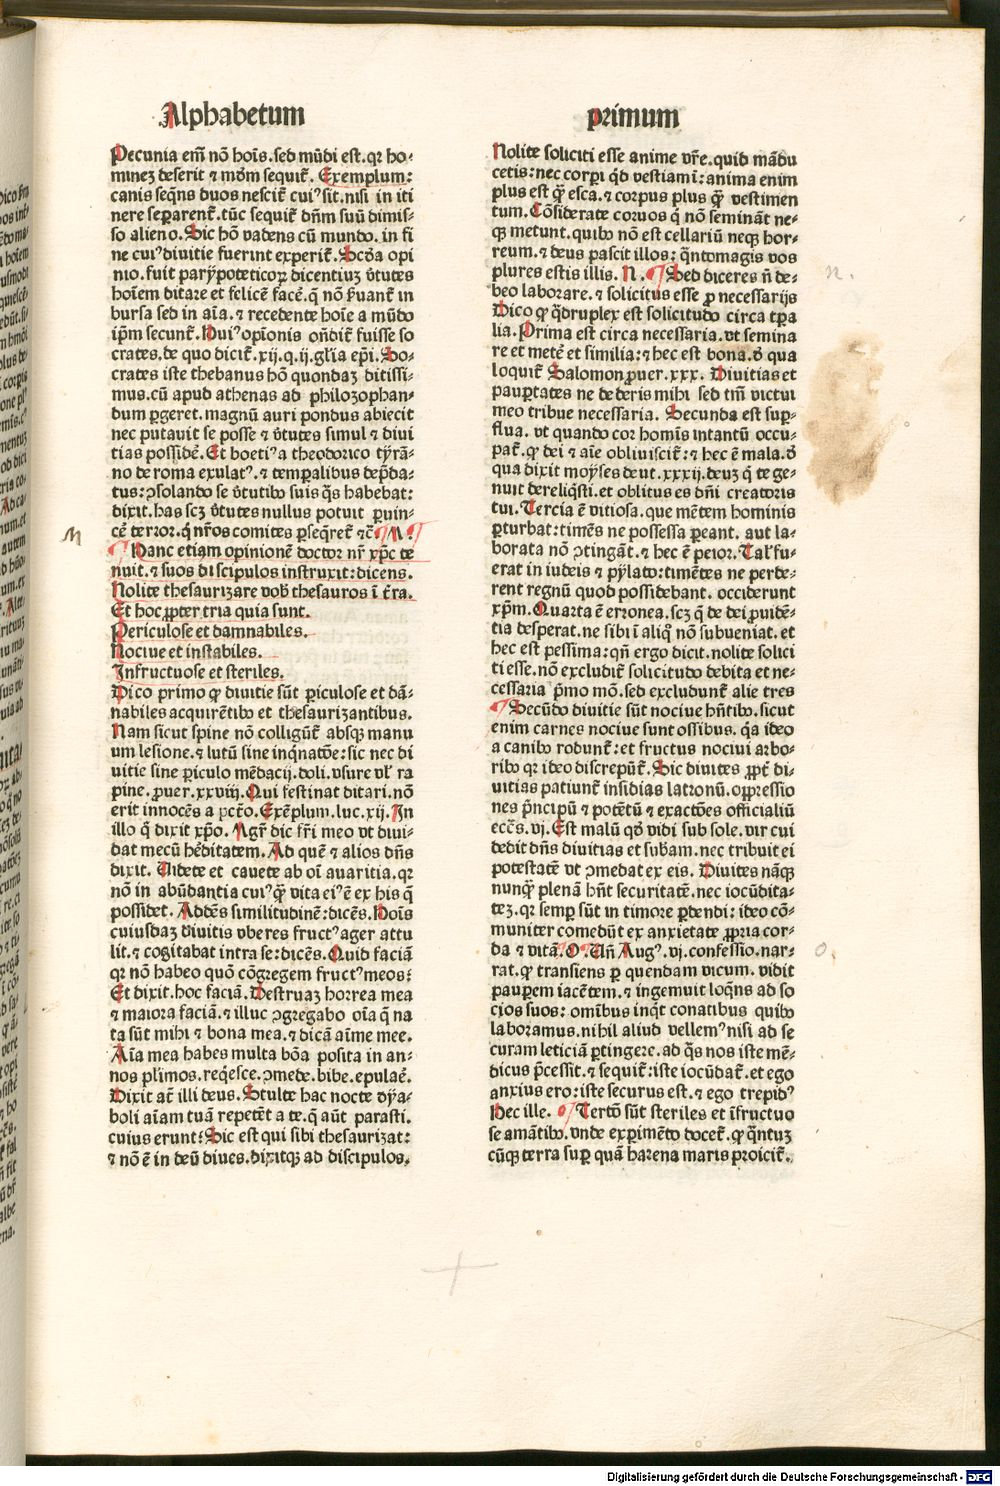 Alphabetum
Pecunia em̄ nō hoīs. sed mūdi est. qꝛ ho⸗
minez deserit ⁊ mōm sequit᷑. Exemplum:
canis seqn̄s duos nescit᷑ cuiꝰ sit. nisi in iti
nere separent᷑. tūc sequit᷑ dn̄m suū dimis⸗
so alieno. Sic hō vadens cū mundo. in fi
ne cuiꝰ diuitie fuerint experit᷑. Scḋa opi
nio. fuit paripoteticoꝝ dicentiuꝫ v̓tutes
hoīem ditare et felicē facē. q̄ nō ẜuant᷑ in
bursa sed in aīa. ⁊ recedente hoīe a mūdo
ip̄m secunt᷑. Huiꝰ opīonis on̄dit᷑ fuisse so
crates. de quo dicit᷑. xij. q. ij. gl̓ia ep̄i. So⸗
crates iste thebanus hō quondaꝫ ditissi⸗
mus. cū apud athenas ad philozophan⸗
dum ꝑgeret. magnū auri pondus abiecit
nec putauit se posse ⁊ v̓tutes simul ⁊ diui
tias possidē. Et boetiꝰ a theodorico tyrā⸗
no de roma exulatꝰ. ⁊ temꝑalibus dep̄da⸗
tus: ꝯsolando se v̓tutibꝰ suis q̄s habebat:
dixit. has scꝫ v̓tutes nullus potuit ꝓuin⸗
cē terror. q̄ nr̄os comites ꝑseqret᷑ ⁊c̄ ¶ M. ¶
M
¶ Hanc etiam opinionē doctor nr̄ xp̄c te
nuit. ⁊ suos discipulos instruxit: dicens.
Nolite thesaurizare vob̓ thesauros ī t̄ra.
Et hoc ꝓpter tria quia sunt.
Periculose et damnabiles.
Nociue et instabiles.
Infructuose et steriles.
Dico primo ꝙ diuitie sūt ꝑiculose et dā⸗
nabiles acquirētibꝰ et thesaurizantibus.
Nam sicut spine nō colligūt᷑ absqꝫ manu
um lesione. ⁊ lutū sine inqnatōe: sic nec di
uitie sine ꝑiculo mēdacij. doli. vsure vl̓ ra
pine. ꝓuer. xxviij. Qui festinat ditari. nō
erit innocēs a pctō. Exēplum. luc. xij. In
illo q̄ dixit xp̄o. Mgr̄ dic fr̄i meo vt diui⸗
dat mecū hēditatem. Ad quē ⁊ alios dn̄s
dixit. Videte et cauete ab oī auaritia. qꝛ
nō in abūdantia cuiꝰ q̄ꝫ vita eiꝰ ē ex his q̄
possidet. Addēs similitudinē: dicēs. Hoīs
cuiusdaꝫ diuitis vberes fructꝰ ager attu
lit. ⁊ cogitabat intra se: dicēs. Quid faciā
qꝛ nō habeo quō cōgregem fructꝰ meos:
Et dixit. hoc faciā. Destruaꝫ horrea mea
⁊ maiora faciā. ⁊ illuc ꝯgregabo oīa q̄ na
ta sūt mihi ⁊ bona mea. ⁊ dicā aīme mee.
Aīa mea habes multa bōa posita in an⸗
nos pl̓imos. reqesce. ꝯmede. bibe. epulaē.
Dixit at̄ illi deus. Stulte hac nocte dya⸗
boli aīam tuā repetēt a te. q̄ aūt parasti.
cuius erunt: Sic est qui sibi thesaurizat:
⁊ nō ē in deū diues. dixitqꝫ ad discipulos.
primum
Nolite soliciti esse anime vr̄e. quid mādu
cetis: nec corꝑi qd vestiamī: anima enim
plus est q̄ꝫ esca. ⁊ corpus plus q̄ꝫ vestimen
tum. Cōsiderate coruos q̄ nō semināt ne⸗
qꝫ metunt. quibꝰ nō est cellariū neqꝫ hor⸗
reum. ⁊ deus pascit illos: qn̄tomagis vos
plures estis illis. N. ¶ Sed diceres n̄ de⸗
n.
beo laborare. ⁊ solicitus esse ꝓ necessarijs
Dico ꝙ qdruplex est solicitudo circa tꝑa
lia. Prima est circa necessaria. vt semina
re et metē et similia: ⁊ hec est bona. ꝺ̄ qua
loquit᷑ Salomon ꝓuer. xxx. Diuitias et
pauꝑtates ne dederis mihi sed tm̄ victui
meo tribue necessaria. Secunda est suꝑ⸗
flua. vt quando cor homīs intantū occu⸗
pat᷑. ꝙ dei ⁊ aīe obliuiscit᷑: ⁊ hec ē mala. ꝺ̄
qua dixit moyses deut. xxxij. deuꝫ q̄ te ge⸗
nuit dereliqsti. et oblitus es dn̄i creatoris
tui. Tercia ē vitiosa. que mētem hominis
ꝑturbat: timēs ne possessa ꝑeant. aut la⸗
borata nō ꝯtingāt. ⁊ hec ē peior. Tal̓ fu⸗
erat in iudeis ⁊ pylato: timētes ne perde⸗
rent regnū quod possidebant. occiderunt
xp̄m. Quarta ē erronea. scꝫ q̄ de dei ꝓuidē⸗
tia desperat. ne sibi ī aliq̄ nō subueniat. et
hec est pessima: qn̄ ergo dicit. nolite solici
ti esse. nō excludit᷑ solicitudo debita et ne⸗
cessaria p̄mo mō. sed excludunt᷑ alie tres
¶ Secūdo diuitie sūt nociue hn̄tibꝰ. sicut
enim carnes nociue sunt ossibus. qa ideo
a canibꝰ rodunt᷑: et fructus nociui arbo⸗
ribꝰ qꝛ ideo discrepūt᷑. Sic diuites ꝓpt̄ di⸗
uitias patiunt᷑ insidias latronū. oppressio
nes p̄ncipū ⁊ potētū ⁊ exactōes officialiū
eccēs. vj. Est malū qḋ vidi sub sole. vir cui
dedit dn̄s diuitias et subam. nec tribuit ei
potestatē vt ꝯmedat ex eis. Diuites nāqꝫ
nunqꝫ plenā hn̄t securitatē. nec iocūdita⸗
teꝫ. qꝛ semꝑ sūt in timore ꝑdendi: ideo cō⸗
muniter comedūt ex anxietate ꝓpria cor⸗
da ⁊ vitā. O. ¶ Vn̄ Augꝰ. vj. confessio. nar⸗
o.
rat. ꝙ transiens ꝑ quendam vicum. vidit
pauꝑem iacētem. ⁊ ingemuit loqn̄s ad so
cios suos: omībus inqt conatibus quibꝰ
laboramus. nihil aliud vellemꝰ nisi ad se
curam leticiā ꝑtingere. ad q̄s nos iste mē⸗
dicus p̄cessit. ⁊ sequit᷑: iste iocūdat᷑. et ego
anxius ero: iste securus est. ⁊ ego trepidꝰ
Hec ille. ¶ Tertō sūt steriles et īfructuo
se amātibꝰ. vnde experimēto docet᷑. ꝙ qn̄tuꝫ
cūqꝫ terra suꝑ quā harena maris proicit᷑.
Digitalisierung gefördert durch die Deutsche Forschungsgemeinschaft - DFG